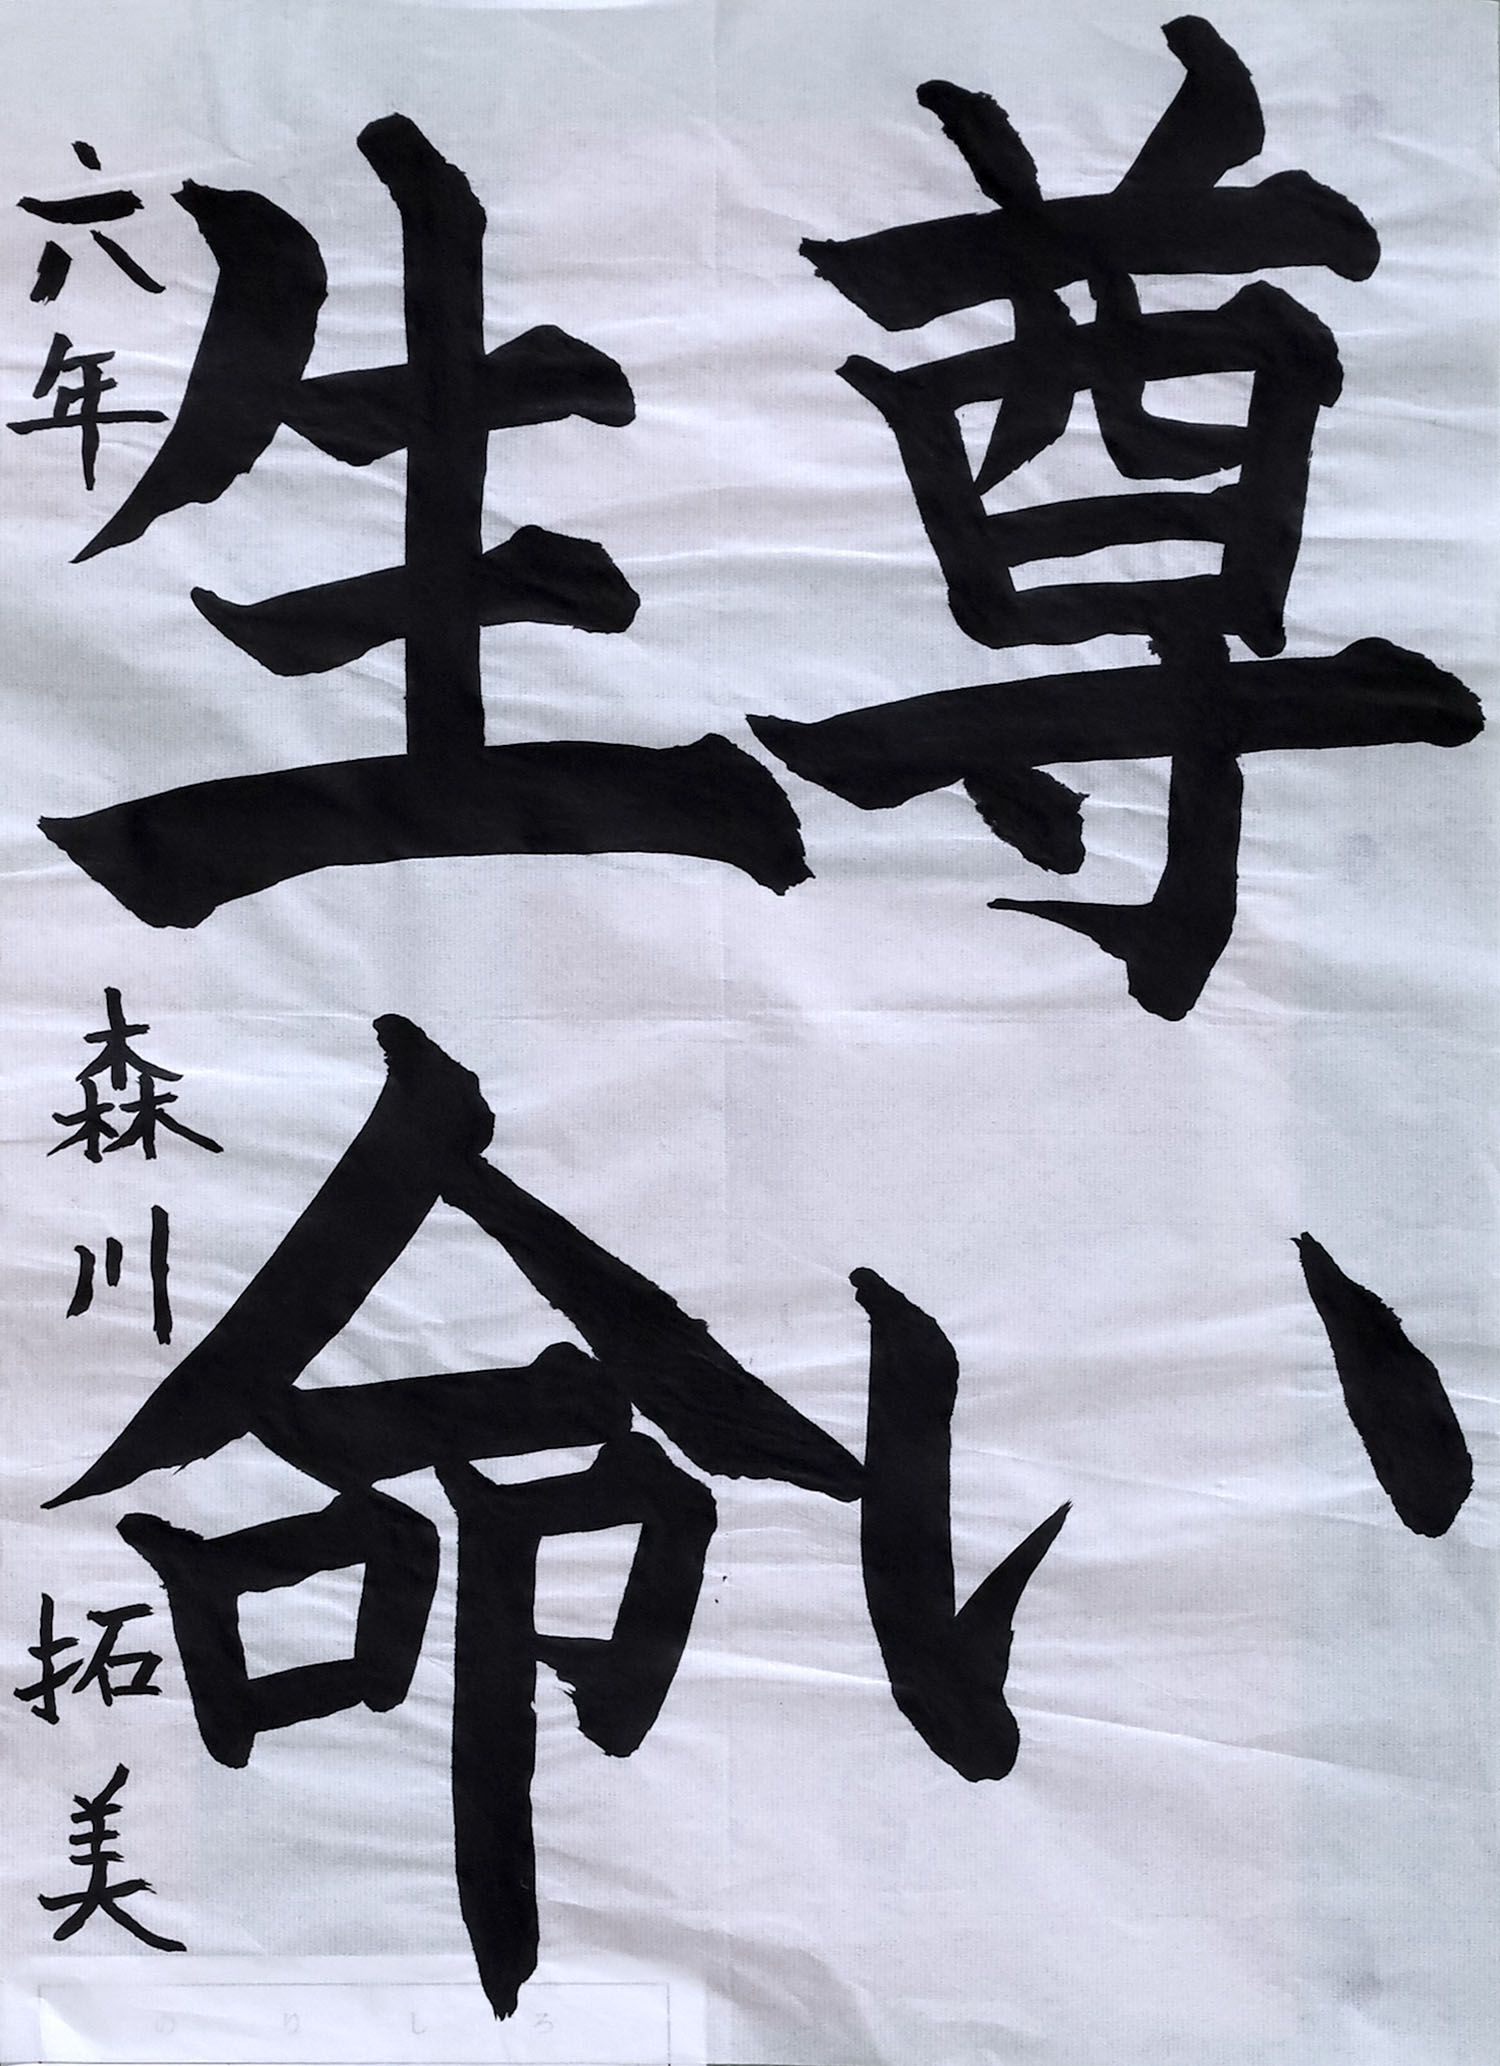 尊い
生命
六年 森川 拓美
のりしろ